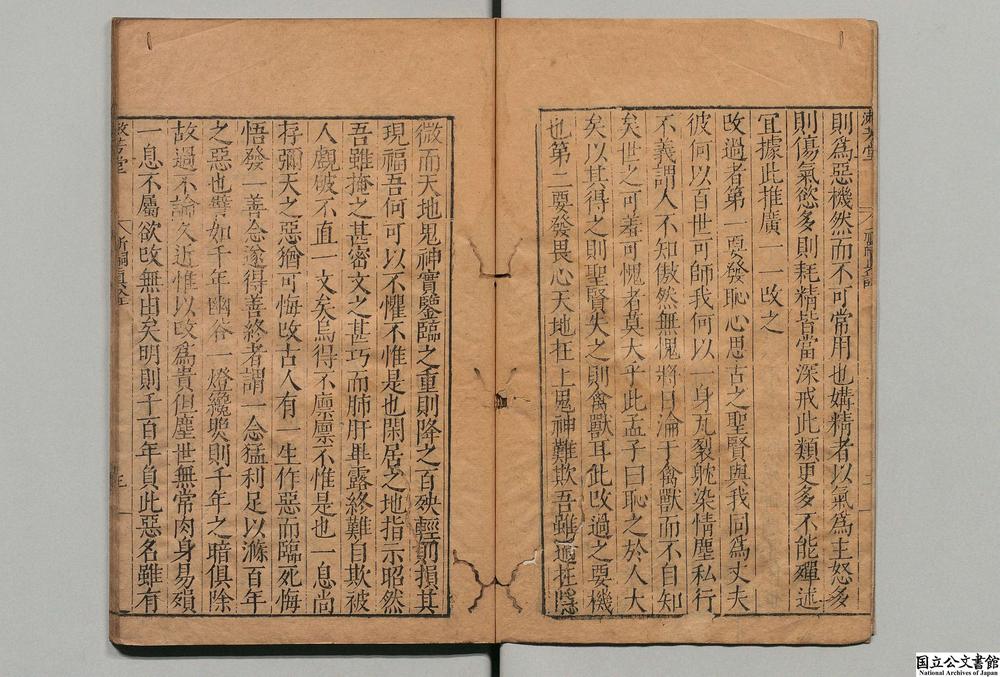 則爲惡機然而不可常用也媾精者以氣爲主怒多
則傷氣慾多則耗精皆當深戒此類更多不能殫述
宜據此推廣一一改之
改過者第一要發恥心思古之聖賢與我同爲丈夫
彼何以百世可師我何以一身瓦裂躭染情塵私行
不義謂人不知傲然無愧將日淪于禽獸而不自知
矣世之可羞可愧者莫大乎此孟子曰恥之於人大
矣以其得之則聖賢失之則禽獸耳此改過之要機
也第二要發畏心天地在上鬼神難欺吾雖過在隱
微而天地鬼神實鑒臨之重則降之百殃輕則損其
現福吾何可以不懼不惟是也閑居之地指示昭然
吾雖掩之甚密文之甚巧而肺肝畢露終難自欺被
人覷破不直一文矣烏得不廪廪不惟是也一息尚
存彌天之惡猶可悔改古人有一生作惡而臨死悔
悟發一善念遂得善終者謂一念猛利足以滌百年
之惡也譬如千年幽谷一燈纔㷼則千年之暗俱除
故過不論久近惟以改爲貴但塵世無常肉身易殞
一息不屬欲改無由矣明則千百年負此惡名雖有
國立公文書館
National Archives of Japan